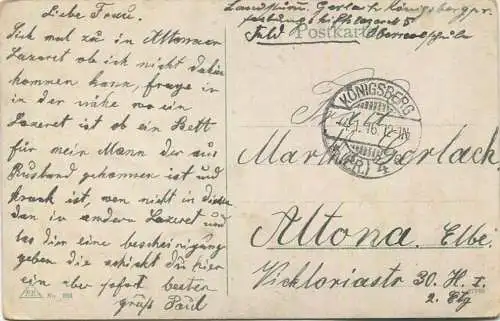 Liebe Frau.
Sieh mal zu in Altonaer
Lazaret ob ich nicht dahin
kommen kann, frage in
in der nähe wo ein
Lazaret ist ob ein Bett
für mein Mann der aus
Rusland gekommen ist und
krank ist, wen nicht in diesen
dan in andern Lazaret und
las dim eine bescheinigung
geben die schickt du hier
ein aber sofort besten
grüß Paul
Landstürm. Gerlach Königsbergpr.
festungshilfslazaret 5
Feld Postkarte Oberrealschule
KÖNIGSBERG
16. 12-1N.
(PR.) 4
Frau
Martha Gerlach
Altona. Elbe
Vicktoriastr 30. H. I
2. Etg